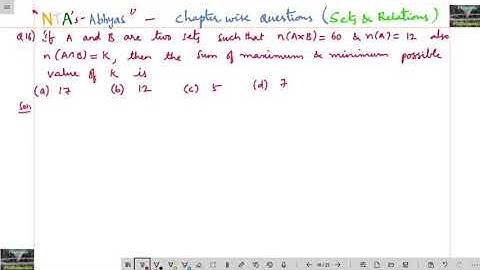 "NTA's - Abhyas" - chapter wise questions (Sets & Relations)
Q18) If A and B are two sets such that n(A×B) = 60 & n(A) = 12 also
n(A∩B) = K, then the sum of maximum & minimum possible
value of K is
(a) 17 (b) 12 (c) 5 (d) 7
Soln